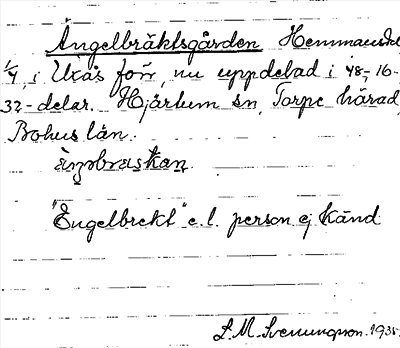 Ängelbräktsgården Hemmansdel
1/4, i Uxås förr, nu uppdelad i 48-, 16-
32-delar. Hjärtum sn, Torpe härad,
Bohus län.
"Engelbrekt" e.l. person ej känd.
L. M. Svenungson. 1935.